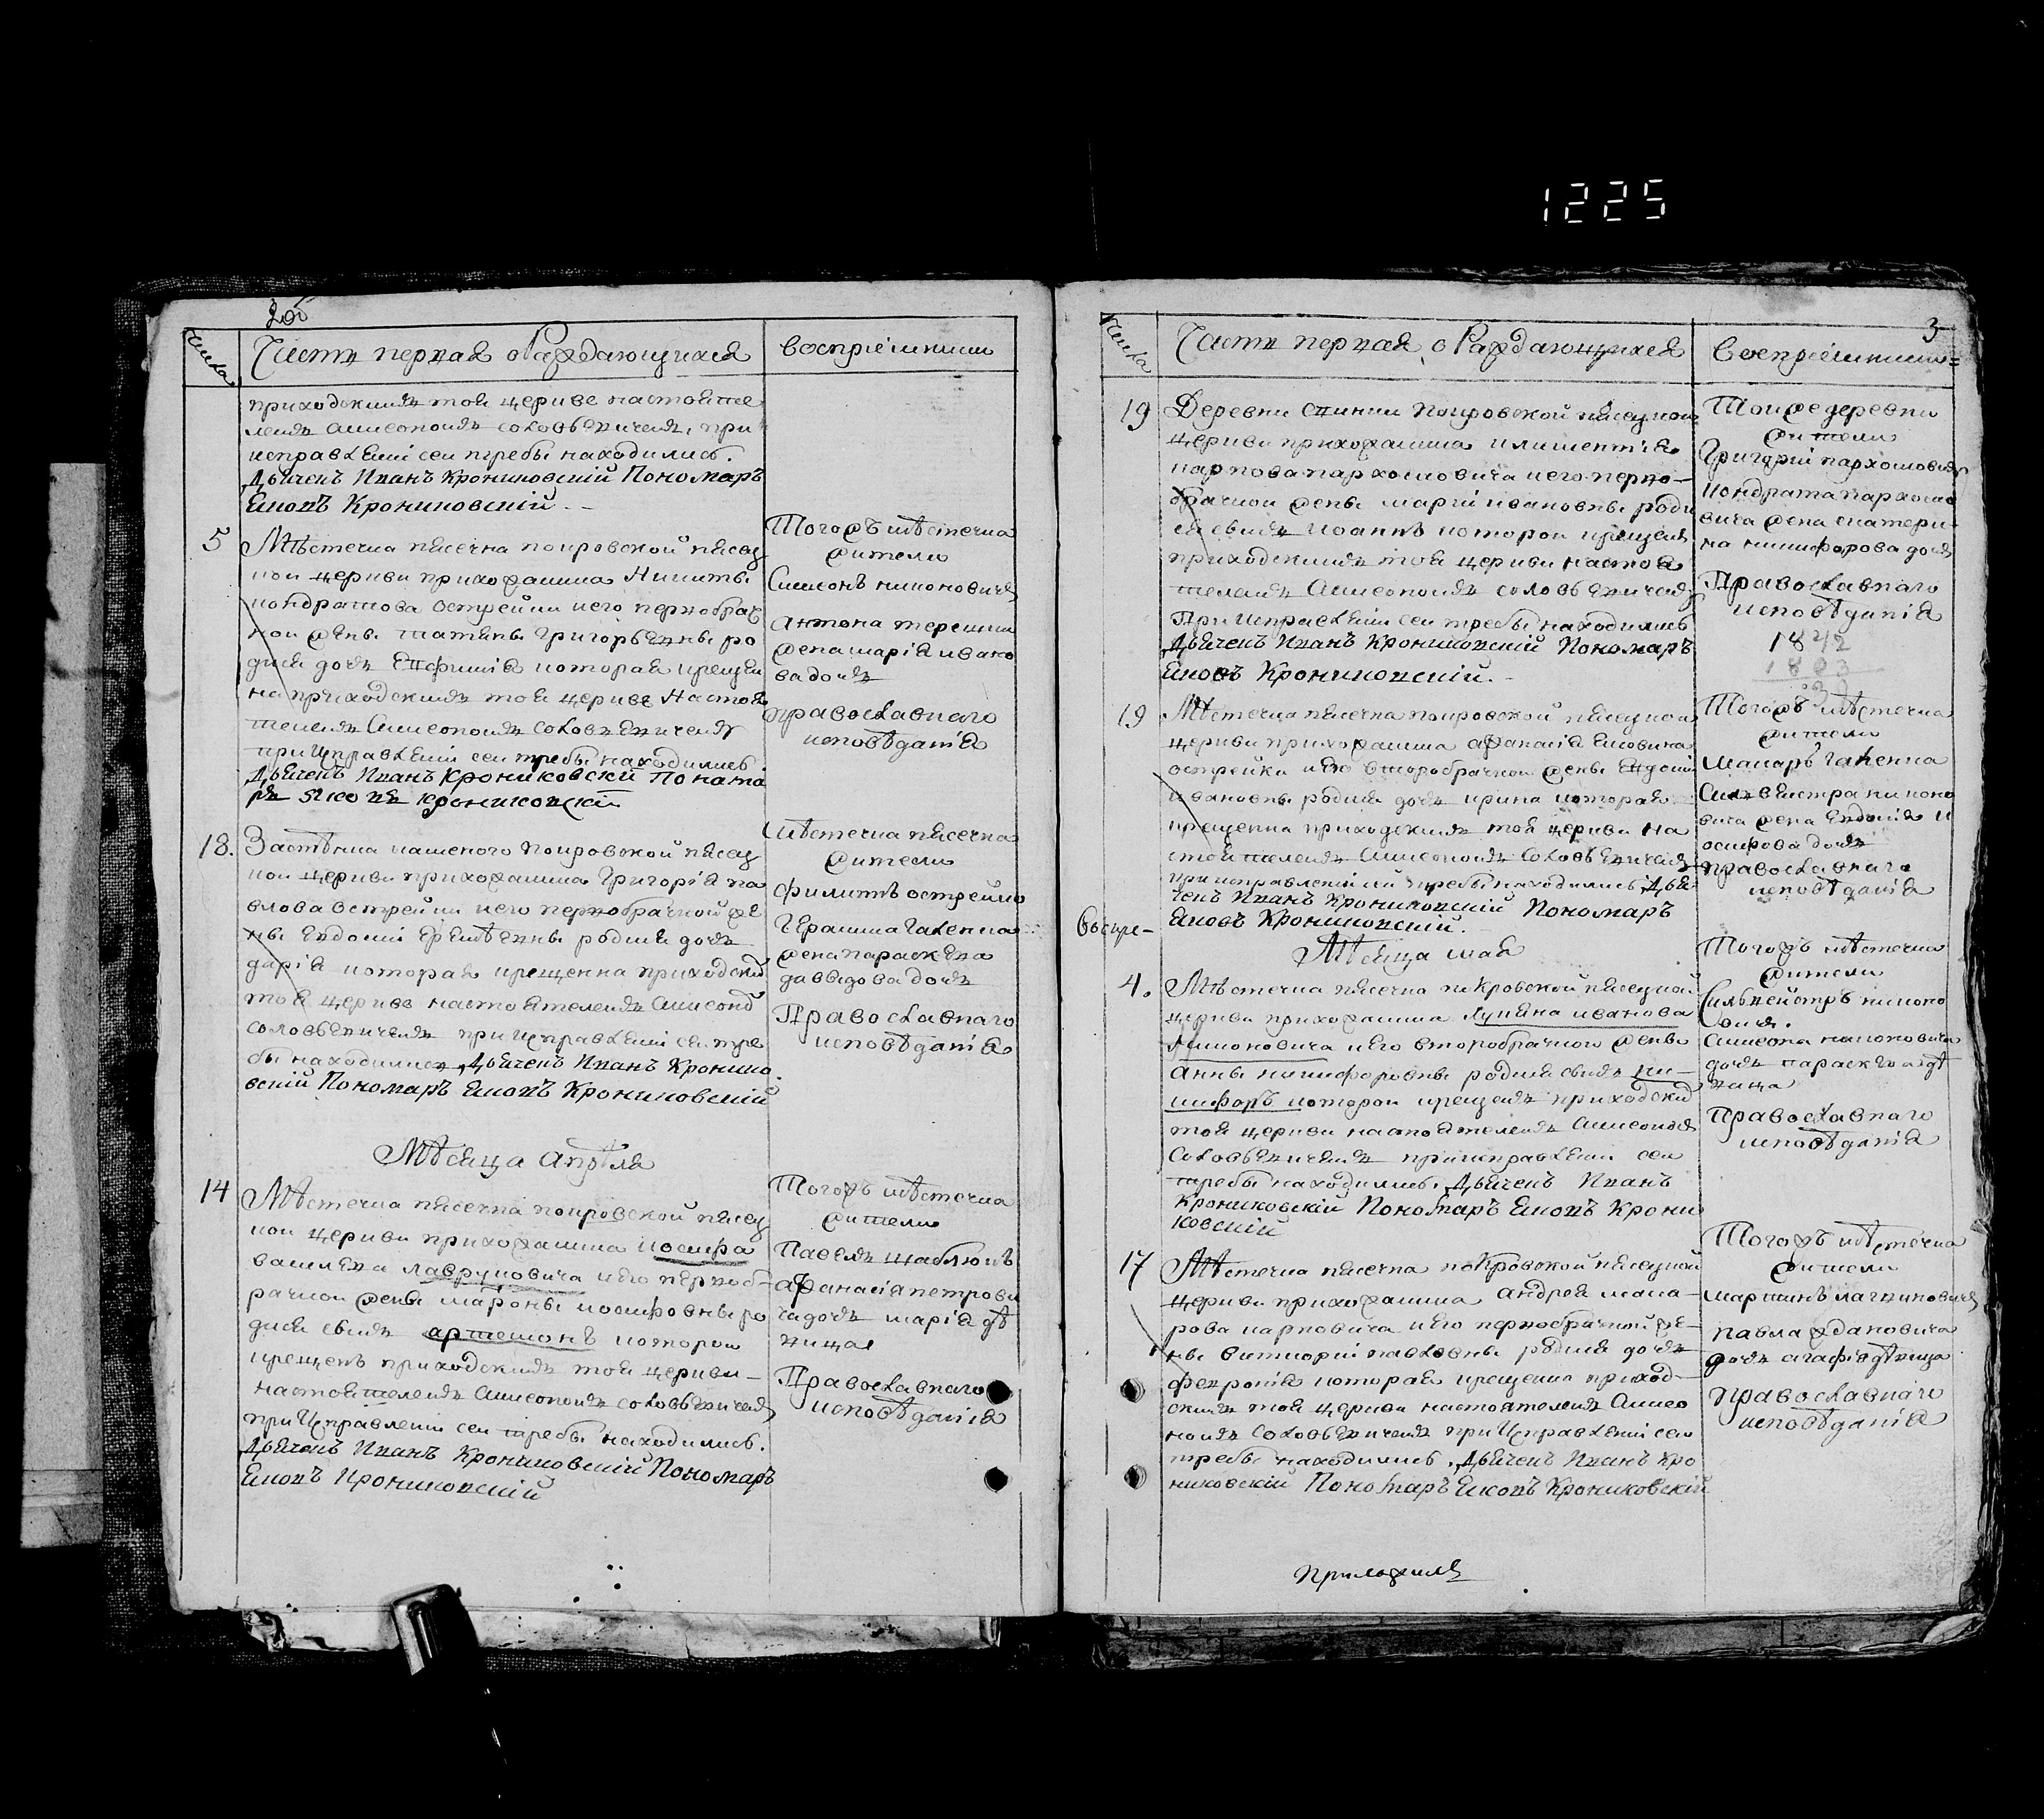 1225
числа
Часть первая о Раждающихся
восприемники
приходскимъ тоя церкве настояте
лемъ Симеономъ соловьевичемъ, при
исправленіи сеи требы находились.
Дьячекъ Иванъ Крониковскій Пономаръ
Яковъ Крониковскій.
5
Мѣстечка пясечна покровской пясеч
нои церкви прихожанина Никиты
кондратова острейки иего первобрач
нои жены татьяны григорьевны ро
дися дочь Евфимія которая креще
на приходскимъ тоя церкве Настоя
телемъ Симеономъ соловьевичемъ
при Исправленіи сеи требы находились
Дьячекъ Иванъ Крониковскій Понама
ръ Яковъ крониковскій
Тогожъ мѣстечка
жители
Симеонъ никоновичъ
антона терешки
жена марія ивано
ва дочь
православнаго
исповѣданія
18.
Застѣнка покровской пясеч
нои церкви прихожанина Григорія па
влова острейки иего первобрачной же
ны Евдокіи родися дочь
дарія которая крещенна приходским
тоя церкве настоятелемъ Симеоно
соловьевичемъ при Исправленіи сеи тре
бы находились Дьячекъ Иванъ Кронико
вскій Пономаръ Яковъ Крониковскій
мѣстечка пясечна
жители
филипъ острейко
жена параскева
давыдова дочь
Православнаго
исповѣданія
Мѣсяца Апрѣля
14
Мѣстечка пясечна покровской пясеч
нои церкви прихожанина иосифа
василева лавруковича иего первоб-
рачнои жены марфоны иосифовны ро
дися сынъ артемонъ которои
крещенъ приходскимъ тоя церкви-
настоятелемъ Симеономъ соловьевичемъ
при Исправленіи сеи требы находились.
Дьячекъ Иванъ Крониковскій Пономаръ
Яковъ Крониковскій
Тогожъ мѣстечка
жители
Павелъ
афанасія петрови
ча дочь марія дѣ
вица
Православнаго
исповѣданія
3
числа
Часть первая о Раждающихся
Восприемники=
19
Деревни Спички Покровской пясечнои
церкви прихожанина
карпова пархомовича иего перво-
брачнои жены маріи ивановны роди
ся сынъ Иоаннъ которои крещенъ
приходскимъ тоя церкви настоя
телемъ Симеономъ соловьевичемъ
При Исправленіи сеи требы находились
Дьячекъ Иванъ Крониковскій Пономаръ
Яковъ Крониковскій.
Тоижедеревни
жители
Григорій пархомовичъ
Кондрата пархомо
вича жена екатери-
на никифорова дочь
Православнаго
исповѣданія
1842
1803
19
Мѣстечка пясечна покровской пясечнои
церкви прихожанина афанасія
острейки иего второбрачнои жены Евдокіи
ивановны родися дочь ирина которая
крещенна приходскимъ тоя церкви на
стоятелемъ Симеономъ Соловьевичемъ
при исправленіи сеи требы находились Дья
чекъ Иванъ Крониковскій Пономаръ
Яковъ Крониковскій.
Тогожъ мѣстечка
жители
Макаръ
Силвестра никоно
вича жена Евдокія и
осифова дочь
православнаго
исповѣданія
Мѣсяца мая
4.
Мѣстечка пясечна покровской пясечной
церкви прихожанина лукяна иванова
никоновича иего второбрачнои жены
Анны никифоровны родися сынъ ни-
кифоръ которои крещенъ приходски
тоя церкви настоятелемъ Симеоном
Соловьевичемъ приисправленіи сеи
требы находились. Дьячекъ Иванъ
Крониковскій Пономаръ Яковъ Крони
ковскій
Тогожъ мѣстечка
жители
Сильвейстръ никоно
вичъ.
Симеона никоновича
дочь параскева дѣ
вица
Православнаго
исповѣданія
17
Мѣстечка пясечна покровской пясечной
церкви прихожанина Андрея мака-
рова карповича иего первобрачной же-
ны павловны родися дочь
февронія которая крещена приход-
скимъ тоя церкви настоятелемъ Симео
номъ Соловьевичемъ при Исправленіи сеи
требы находились. Дьячекъ Иванъ Кро
никовскій Пономаръ Яковъ Крониковскій
Тогожъ мѣстечка
жители
мартинъ
павла ждановича
дочь агафія дѣвица
православнаго
исповѣданія